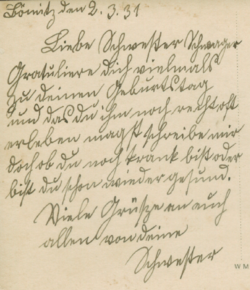 Dömitz den 2.3.31
Liebe Schwester Schwager
Gratuliere dich vielmals
zu deinen Geburtstag
und das du ihm noch recht oft
erleben magst schreibe mir
doch ob du noch krank bist oder
bist du schon wieder gesund.
Viele Grüsze an euch
allen von deine
Schwester
W M